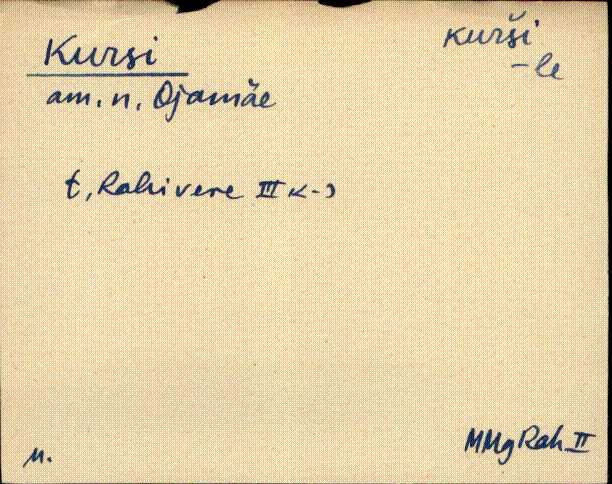 Kursi
kuŕši
-le
am. n. Ojamäe
t, Rahivere III k-s
M.
MMg Rah II